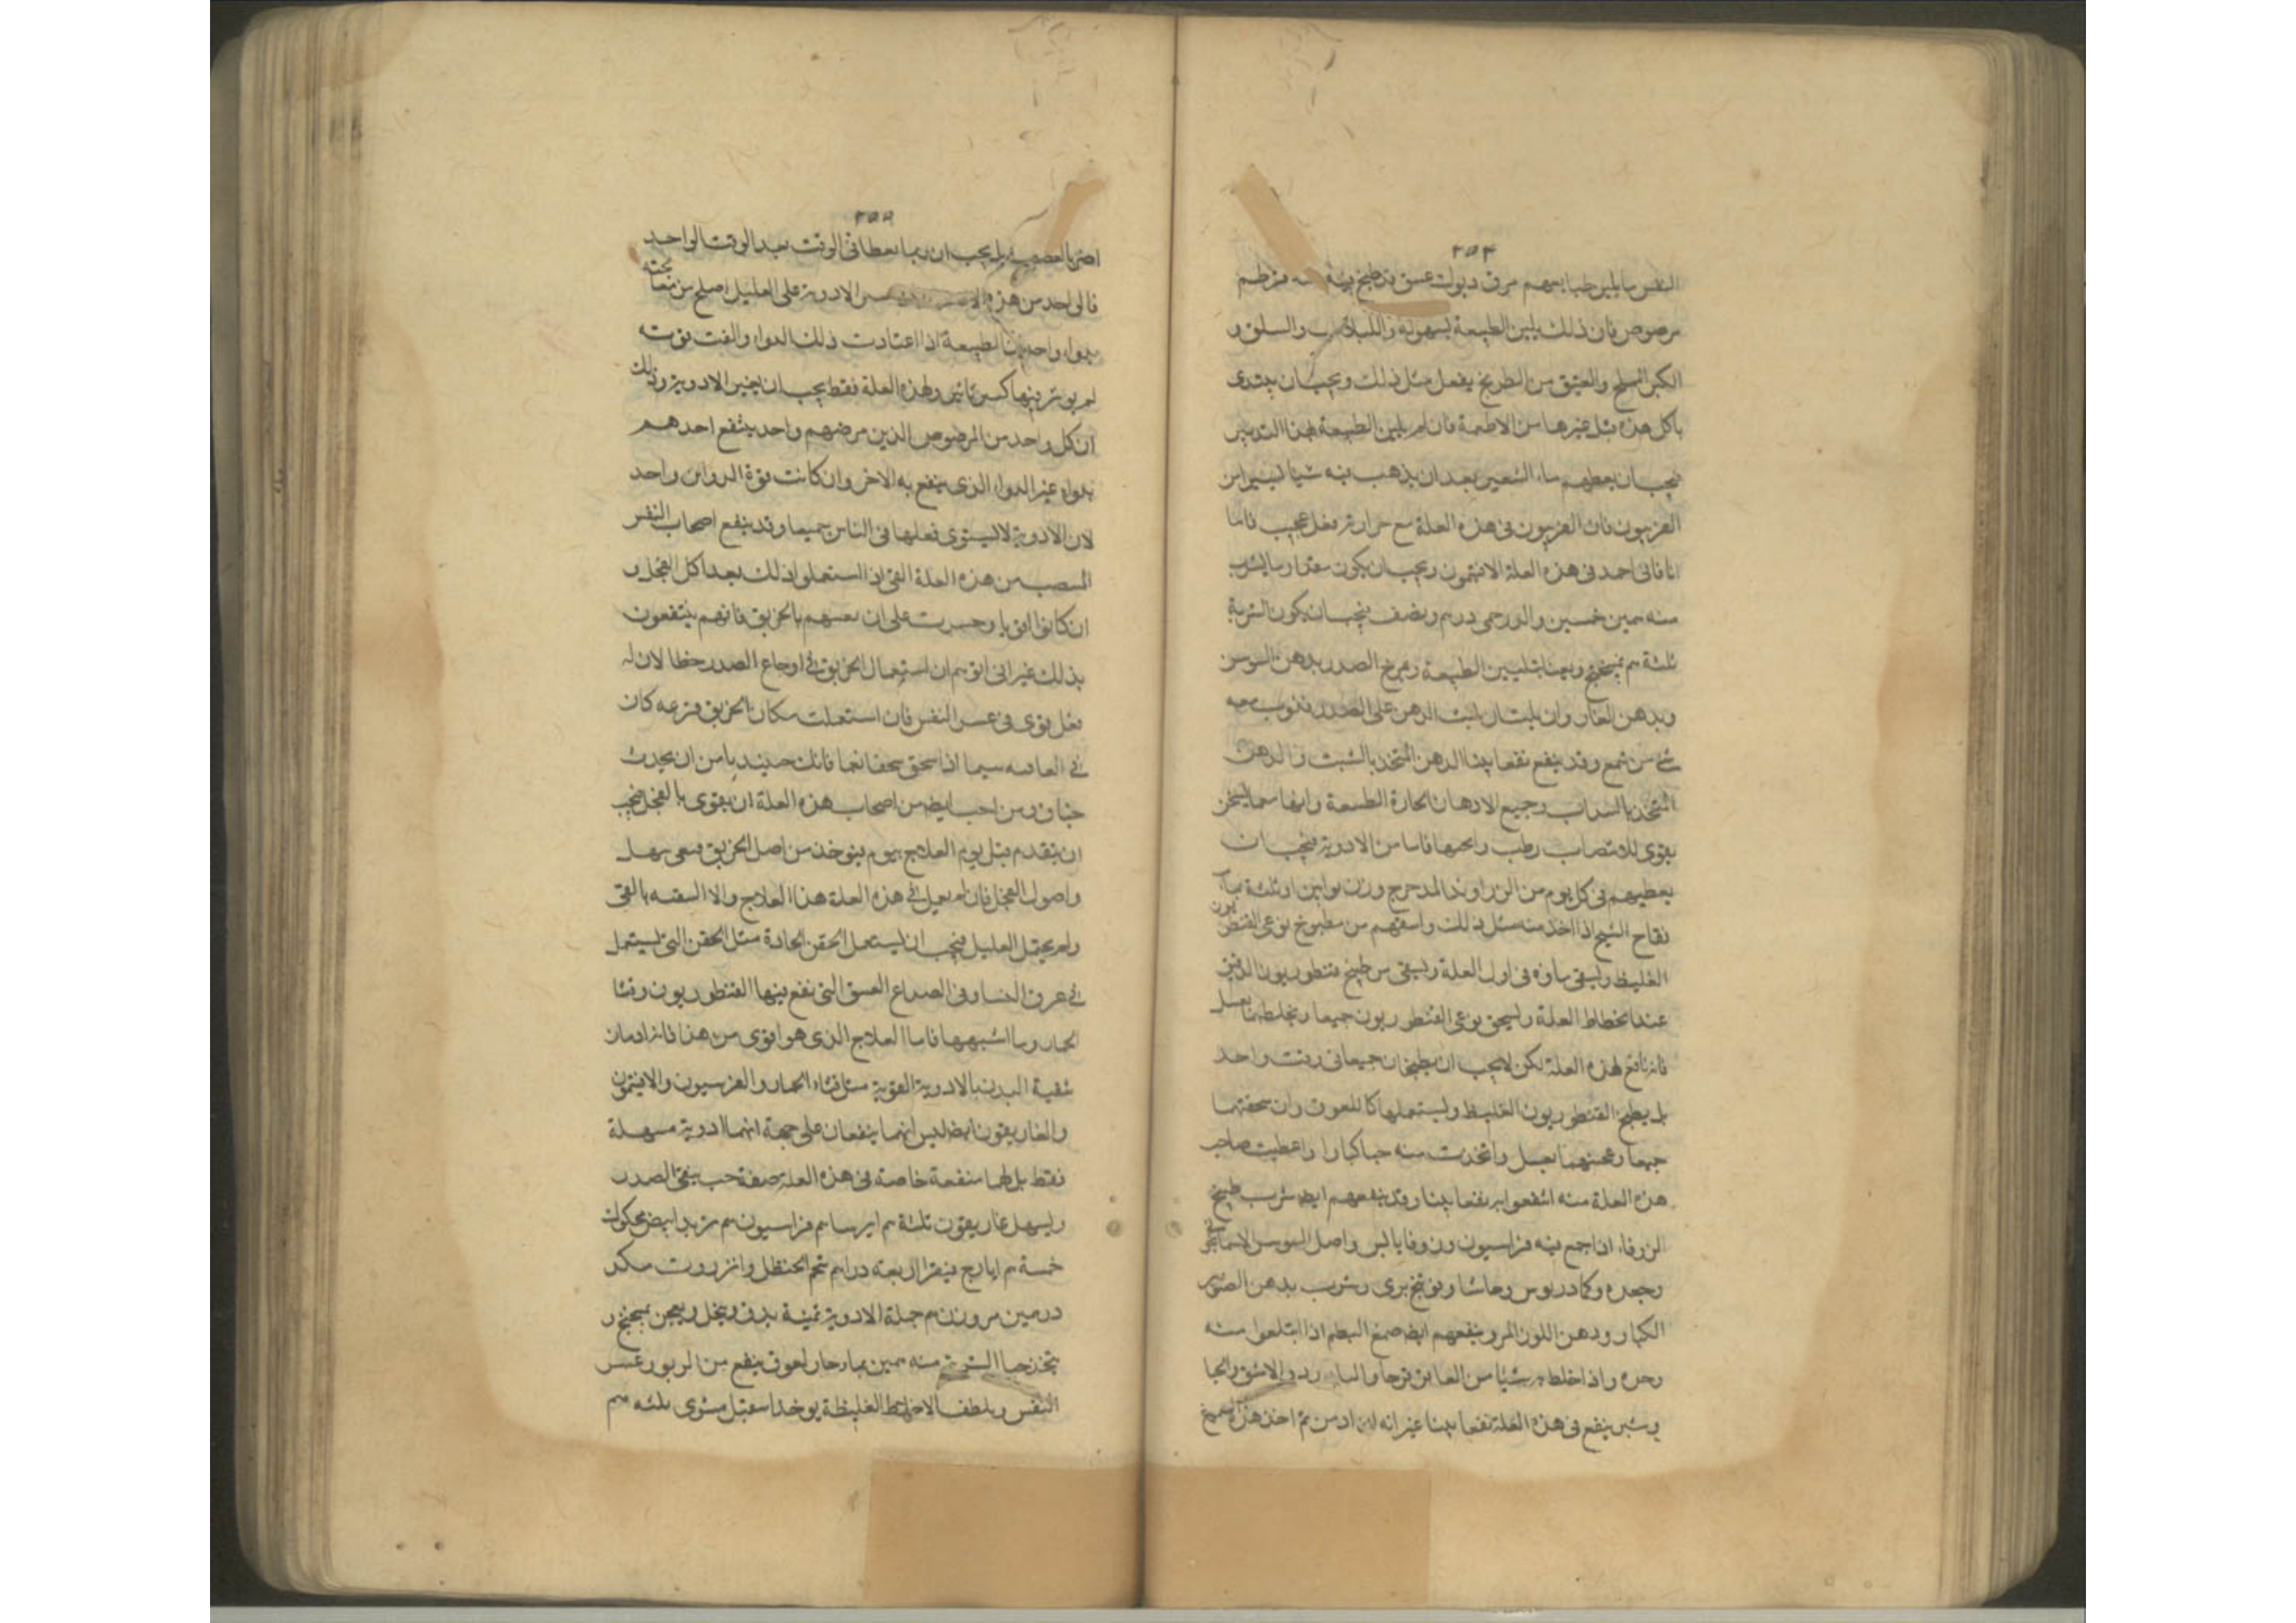 ٢٥٤
النفس ما يلين طبايعهم مرق ديوك عتق قد طبخ فيه قرطم
مرضوض فان ذلك يلين الطبيعة بسهولة واللبلاب والسلق و
الكبر المملح والعتيق من الطريخ يفعل مثل ذلك ويجب ان يبتدى
باكل هذه قبل غيرها من الاطعمة فان لم يلين الطبيعة بهذا التدبير
فيجب ان يعطيهم ماء الشعير بعد ان يذهب فيه شيا يسيرا من
الفربيون فان الفربيون فى هذه العلة مع حرارته فعل عجيب فاما
انا فانى احمد فى هذه العلة الافتيمون ويجب ان يكون مقدار ما يشرب
منه خمسين والدرخمى درهم ونصف فيجب ان يكون الشربة
ثلثة بميبختج ويعنا بتليين الطبيعة ويمرخ الصدر بدهن السوسن
وبدهن الغار وان يلبث الدهن على الصدر فذوب معه
شئ من شمع وقد ينفع نفعا بينا الدهن المتخذ بالشبت والدهن
المتخذ بالسداب وجميع الادهان الحارة الطبيعة
فاما من الادوية فيجب ان
يعطيهم فى كل يوم من الزراوند المدحرج وزن نواتين او ثلثة بماء
فقاح الشيح اذا اخذ منه مثل ذلك واسقهم من مطبوخ نوعى القنطوريون
الغليظ ويسقى ماؤه فى اول العلة ويسقى من طبيخ قنطوريون الدقيق
عند انحطاط العلة ويسحق نوعى القنطوريون جميعا ويخلطهما بعسل
فانه نافع لهذه العلة لكن لا يجب ان يطبخان جميعا فى وقت واحد
بل يطبخ القنطوريون الغليظ ويستعملها كاللعوق وان سحقتهما
جميعا وعجنتهما بعسل واتخذت منه حبا كبارا واعطيت صاحب
هذه العلة منه انتفعوا به نفعا بينا وقد ينفعهم ايض شرب طبيخ
الزوفاء اذا جمع فيه فراسيون وزوفا يابس واصل السوسن الاسمانجونى
وجعده وكمادريوس وحاشا وفوتنج برى وشرب بدهن الصنوبر
الكبار ودهن اللوز المر وينفعهم ايض صمغ البطم اذا ابتلعوا منه
وحده واذا خلط به شيئا من
وشبر ينفع فى هذه العلة نفعا بينا غير انه من اخذ هذه الصموغ
٢٥٥
اضر بالعصب بل يجب ان ربما يعطا فى الوقت بعد الوقت الواحد
فالواحد من هذه الادوية على العليل اصلح من
بدواء واحد فان الطبيعة اذا اعتادت ذلك الدواء والفت قوته
لم يوثر فيها كبير تاثير ولهذه العلة فقط يجب ان يغير الادوية وذلك
ان كل واحد من المرضى الذين مرضهم واحد ينتفع احدهم
بدواء غير الدواء الذى ينتفع به الاخر وان كانت قوة الدوائين واحد
لان الادوية لا يستوى فعلها فى الناس جميعا وقد ينفع اصحاب النفس
المنتصب من هذه العلة القئ اذا استعملوا ذلك بعد اكل الفجل و
ان كانوا اقويا وجسرت على ان تقيئهم بالخربق فانهم ينتفعون
بذلك غير انى اتوهم ان استعمال الخربق فى اوجاع الصدر خطا لان له
فعل قوى فى عسر النفس فان استعملت مكان الخربق قرعه كان
فى العاقبه سيما اذا سحق سحقا ناعما فانك حينئذ يامن ان يحدث
خناق ومن احب ايض من اصحاب هذه العلة ان يقوى بالفجل فيجب
ان يتقدم قبل يوم العلاج بيوم فيوخذ من اصل الخربق
واصول الفجل فان لم يعمل فى هذه العلة هذا العلاج والا السقيه بالقئ
ولم يحتمل العليل فيجب ان يستعمل الحقن الحادة مثل الحقن التى يستعمل
فى عرق النسا وفى الصداع العسق التى نقع فيها القنطوريون وقثا
الحمار وما اشبهها فاما العلاج الذى هو اقوى من هذا فانه ادمان
تنقية البدن بالادوية القوية مثل قثاء الحمار والفربيون والافتيمون
والغاريقون ايض ليس انهما ينفعان على جهة انهما ادوية مسهلة
فقط بل لهما منفعة خاصة فى هذه العلة صفة حب ينقى الصدر
ويسهل غاريقون ثلثة ايرسا فراسيون تربد ابيض محكوك
خمسة ايارج فيقرا اربعه دراهم شحم الحنظل وانزروت من كل
درهمين مر وزن درهم جملة الادوية ثمنية يدق وينخل ويعجن بميبختج و
يتخذ حبا الشربة منه بماء حار لعوق ينفع من الربو وعسر
النفس ويلطف الاخلاط الغليظة يوخذ اسقيل مشوى ثلثه